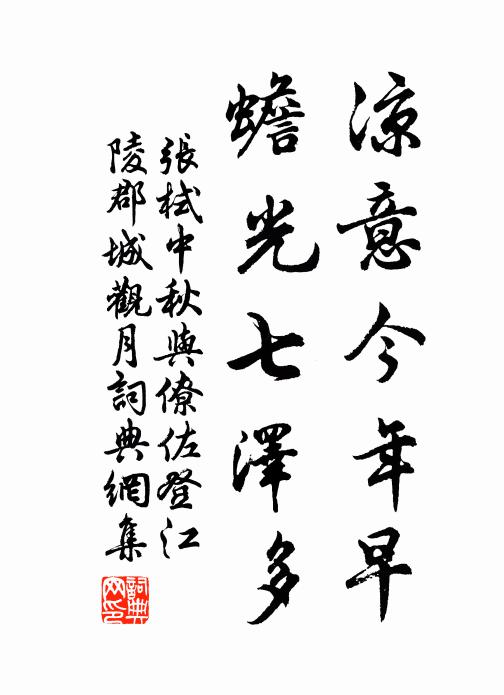 涼意今年早
蟾光七澤多
張栻中秋與僚佐登江
陵郡城觀月詞典網集
詞典网印